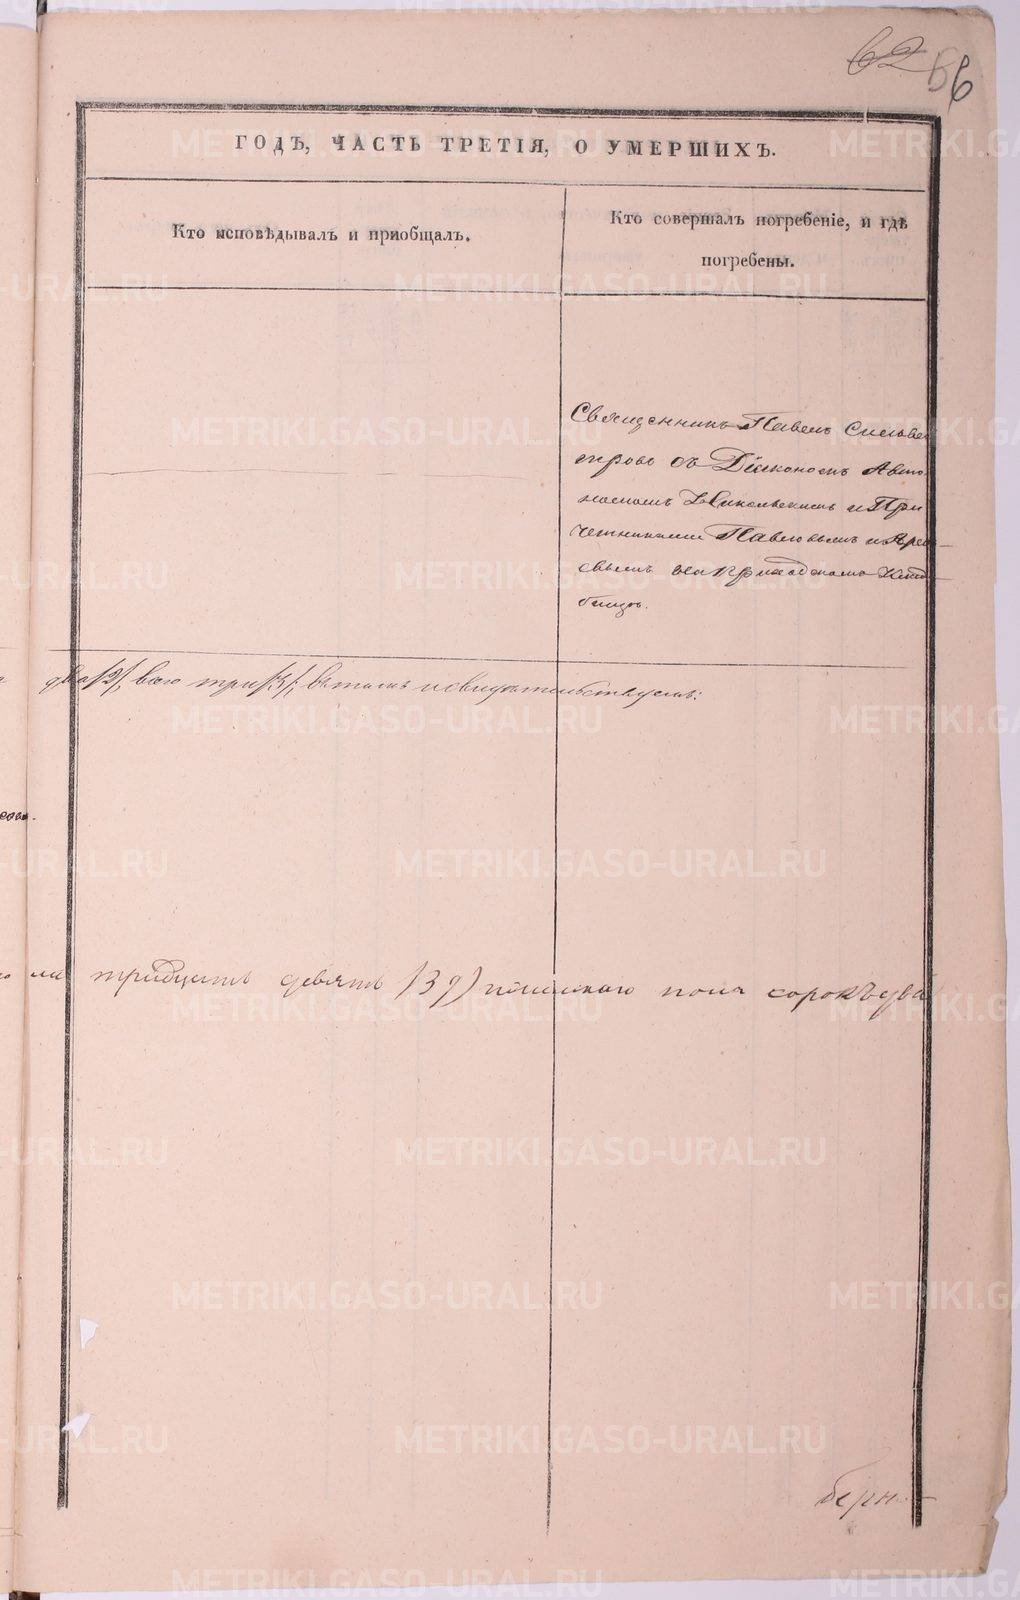 62 66
ГОДЪ, ЧАСТЬ ТРЕТІЯ, О УМЕРШИХЪ.
Кто исповѣдывалъ и пріобщалъ.
Кто совершалъ погребеніе, и гдѣ
погребены.
Священникъ Павелъ Сильве
стровъ съ Діакономъ Авто
номомъ Никольскимъ и При
четниками Павловымъ и
на приходскомъ Клад
бищѣ.
два /2/, всего три /3/; въ томъ и свидѣтельствуемъ:
на тридцать девять /39/ женскаго пола сорокъ два
METRIKI.GASO-URAL.RU